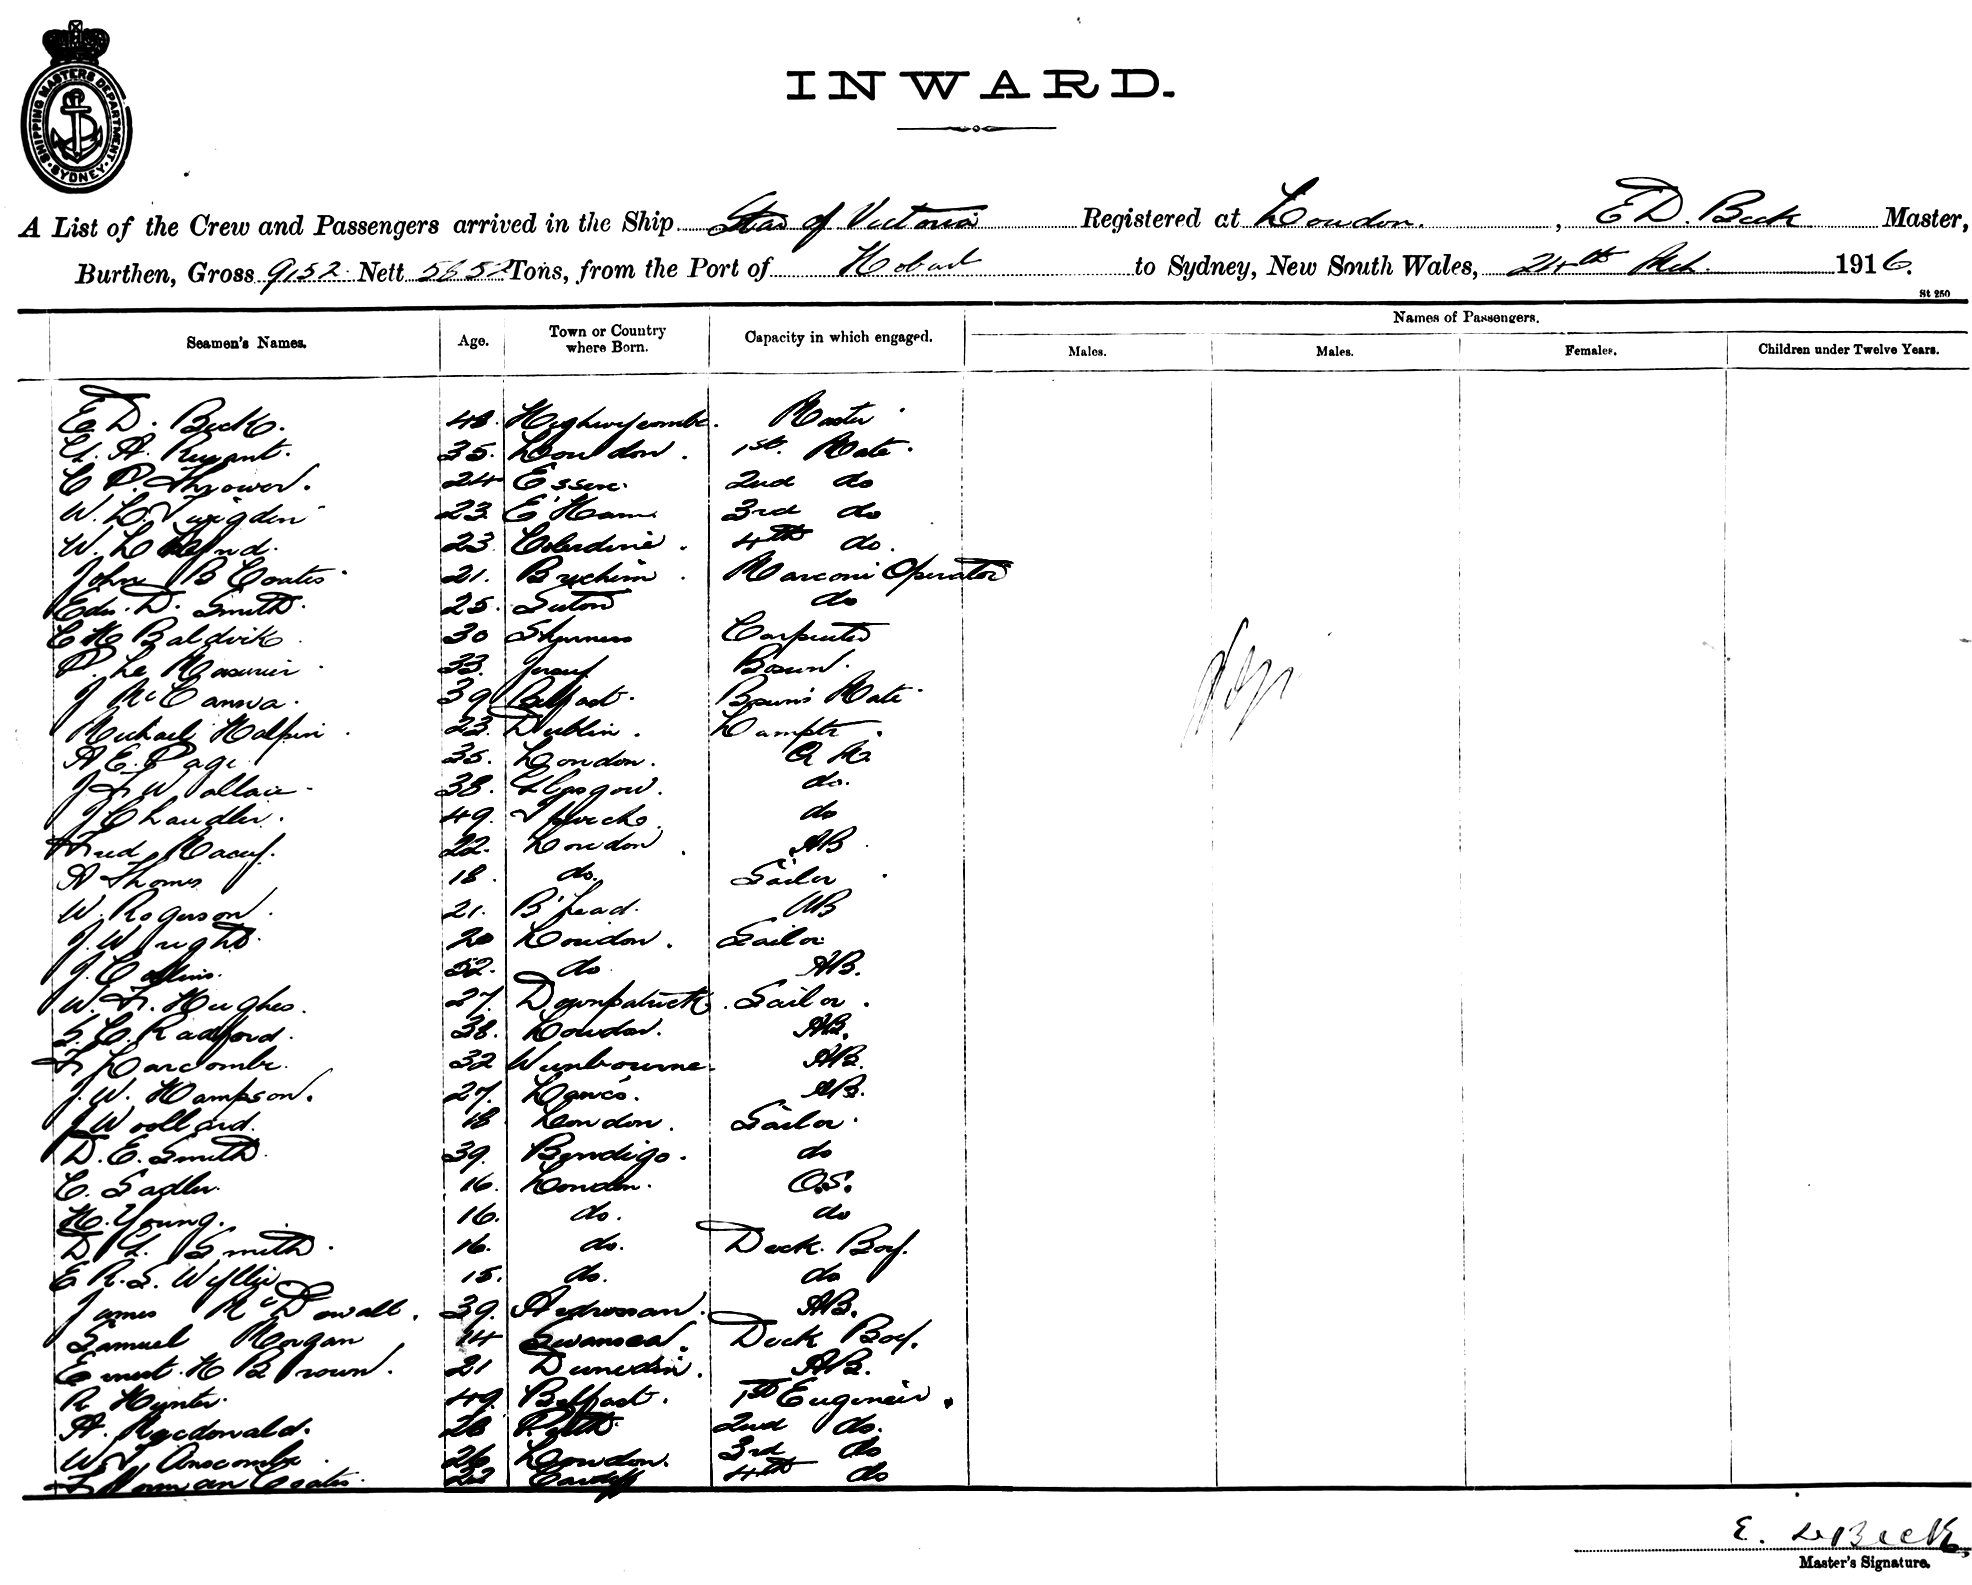 SHIPPING MASTERS DEPARTMENT. SYDNEY.
INWARD.
A List of the Crew and Passengers arrived in the Ship Star of Victoria Registered at London. , E D. Beck Master,
Burthen, Gross 9152 Nett 5652 Tons, from the Port of Hobart to Sydney, New South Wales, 24th Mch. 1916.
St 250
Names of Passengers.
Seamen's Names. Age. Town or Country where Born. Capacity in which engaged. Males. Males. Females. Children under Twelve Years.
E D. Beck. 48. Highwycombe. Master
G. A. 35. London. 1st Mate.
C P. Thrower. 24 Essex. 2nd do
W. L. Twigden 23. E' Ham. 3rd do
W. L. 23. 4th do.
John B Coates 21. Brechin. Marconi Operator
Edw. D. Smith. 25. Suton do
C H Baldwik 30 Sheerness Carpenter
P. Le Masurier 33. Jersey Bosun.
J McCanna. 39 Belfast. Bosun's Mate
Michael Halpin. 23. Dublin. Lamptr.
A E. Page 35. London. Q M.
J F Wallace. 38. Glasgow. do.
J Chandler. 49. Ipswich. do
Fred Macey. 22. London. AB
A Thomas 18. do. Sailor
W. Rogerson. 21. B'head. AB
J. Wright. 20 London. Sailor
J. Collins. 52. do AB.
W. F. Hughes. 27. Downpatrick. Sailor.
S. C. Radford. 38. London. AB.
F Larcombe. 32 Wimbourne. AB.
J. W. Hampson. 27. Lancs. AB.
J Woollard. 18 London. Sailor.
D. E. Smith. 39. Bendigo. do
C. Sadler. 16. London. O.S.
H. Young. 16. do. do
D G. Smith. 16. do. Deck Boy.
E R. S. Wyllie 15. do. do
James McDowall. 39. Ardrossan. AB.
Samuel Morgan 14 Swansea. Deck Boy.
Ernest. H Brown. 21 Dunedin. AB.
R Hunter. 49. Belfast. 1st Engineer.
A. Macdonald. 28 Perth. 2nd do.
W. J Anscombe. 26 London. 3rd do
F Norman Coates. 22 Cardiff 4th do
E. D. Beck
Master's Signature.